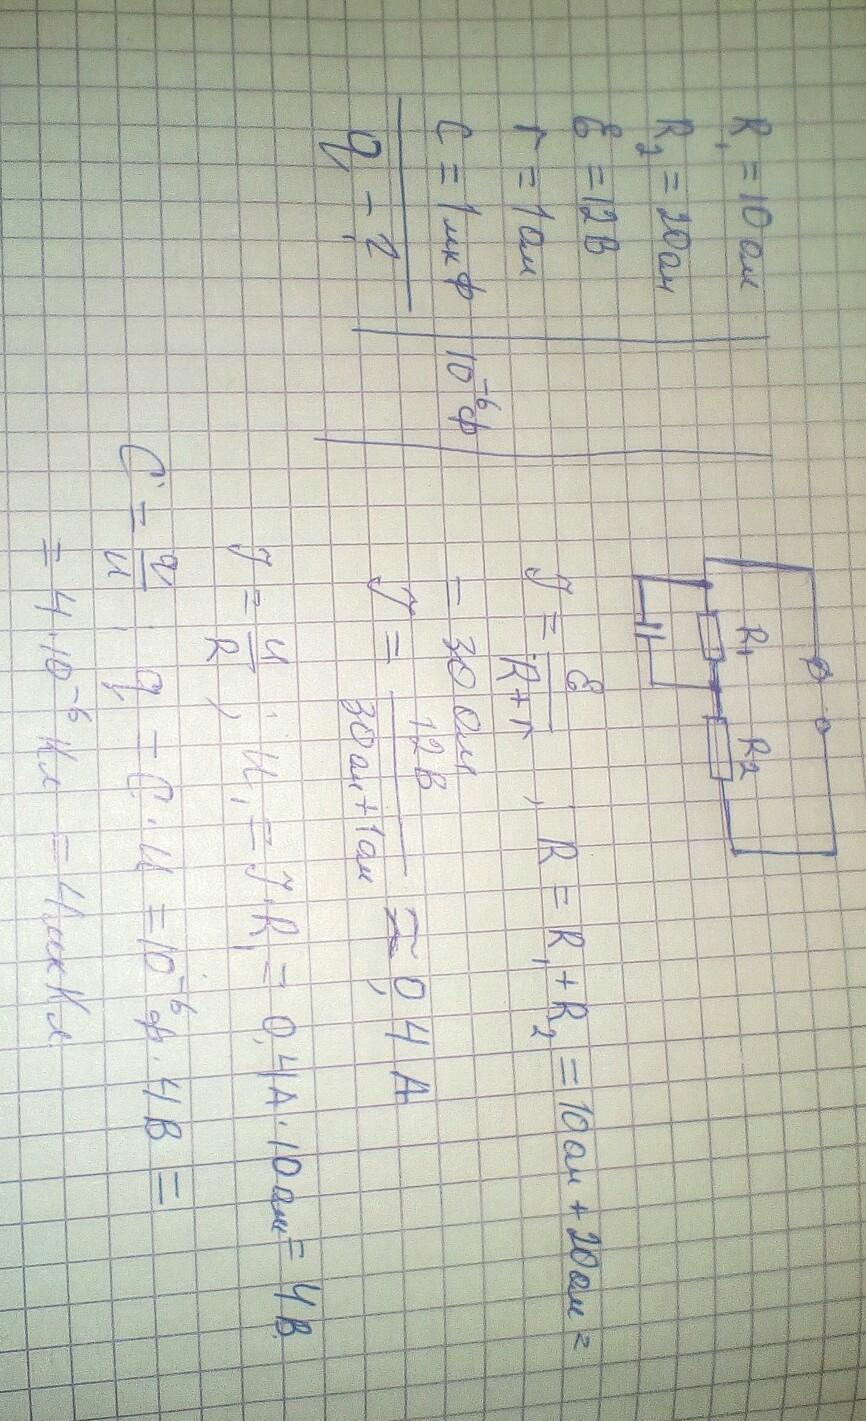 R₁ = 10 ом
R₂ = 20 ом
ℰ = 12 В
r = 1 ом
C = 1 мкФ | 10⁻⁶ Ф
q - ?
R₁ R₂
J = ℰ/(R+r) , R = R₁ + R₂ = 10 ом + 20 ом =
= 30 ом
J = 12 В/(30 ом + 1 ом) ≈ 0,4 А
J = u/R , u₁ = J·R₁ = 0,4 А · 10 ом = 4 В
C = q/u ; q = C · u = 10⁻⁶ Ф · 4 В =
= 4·10⁻⁶ Кл = 4 мкКл